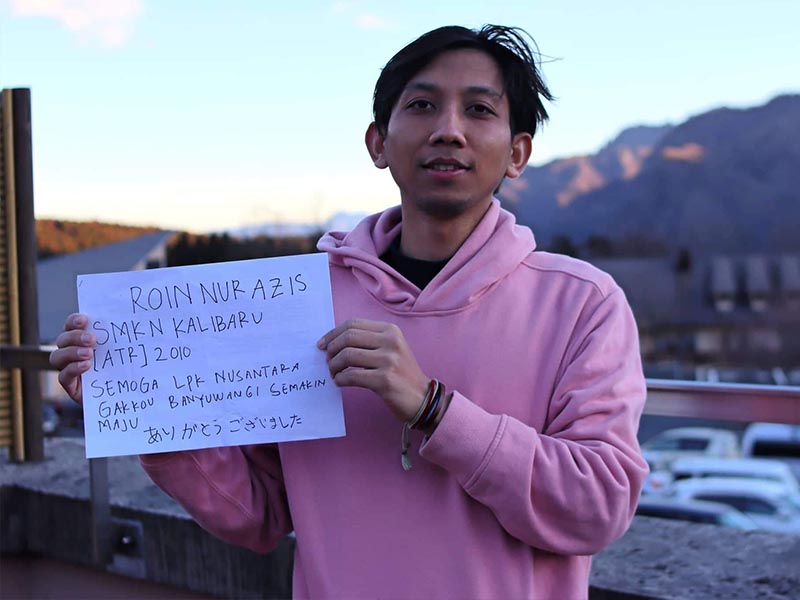 ROIN NUR AZIS
SMKN KALIBARU
[ATR] 2010
SEMOGA LPK NUSANTARA
GAKKOU BANYUWANGI SEMAKIN
MAJU ありがとうございました